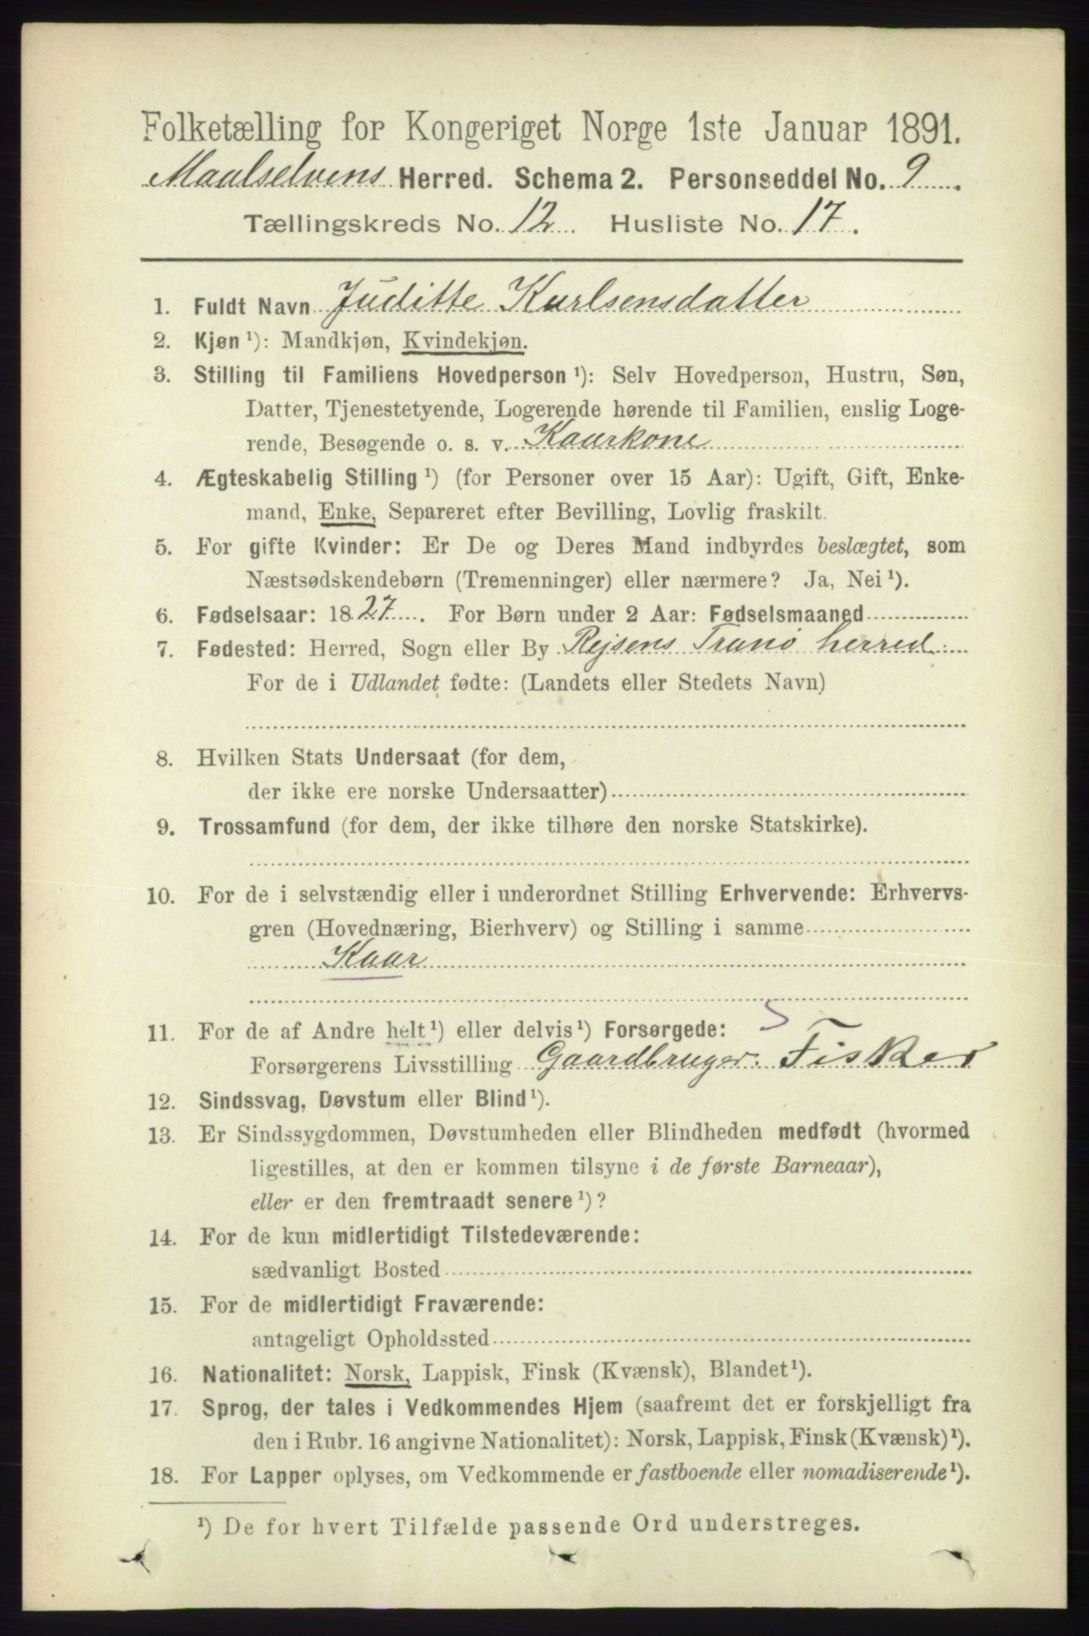 Folketælling for Kongeriget Norge 1ste Januar 1891.
Maalselvens Herred. Schema 2. Personseddel No. 9.
Tællingskreds No. 12. Husliste No. 17.
1. Fuldt Navn Juditte Karlsensdatter
2. Kjøn ¹): Mandkjøn, Kvindekjøn.
3. Stilling til Familiens Hovedperson ¹): Selv Hovedperson, Hustru, Søn,
Datter, Tjenestetyende, Logerende hørende til Familien, enslig Loge-
rende, Besøgende o. s. v. Kaarkone
4. Ægteskabelig Stilling ¹) (for Personer over 15 Aar): Ugift, Gift, Enke-
mand, Enke, Separeret efter Bevilling, Lovlig fraskilt.
5. For gifte Kvinder: Er De og Deres Mand indbyrdes beslægtet, som
Næstsødskendebørn (Tremenninger) eller nærmere? Ja, Nei ¹).
6. Fødselsaar: 1827. For Børn under 2 Aar: Fødselsmaaned
7. Fødested: Herred, Sogn eller By Rejsens Tranø herred.
For de i Udlandet fødte: (Landets eller Stedets Navn)
8. Hvilken Stats Undersaat (for dem,
der ikke ere norske Undersaatter)
9. Trossamfund (for dem, der ikke tilhøre den norske Statskirke).
10. For de i selvstændig eller i underordnet Stilling Erhvervende: Erhvervs-
gren (Hovednæring, Bierhverv) og Stilling i samme
Kaar
11. For de af Andre helt ¹) eller delvis ¹) Forsørgede:
Forsørgerens Livsstilling Gaardbruger. Fisker
12. Sindssvag, Døvstum eller Blind ¹).
13. Er Sindssygdommen, Døvstumheden eller Blindheden medfødt (hvormed
ligestilles, at den er kommen tilsyne i de første Barneaar),
eller er den fremtraadt senere ¹)?
14. For de kun midlertidigt Tilstedeværende:
sædvanligt Bosted
15. For de midlertidigt Fraværende:
antageligt Opholdssted
16. Nationalitet: Norsk, Lappisk, Finsk (Kvænsk), Blandet ¹).
17. Sprog, der tales i Vedkommendes Hjem (saafremt det er forskjelligt fra
den i Rubr. 16 angivne Nationalitet): Norsk, Lappisk, Finsk (Kvænsk) ¹).
18. For Lapper oplyses, om Vedkommende er fastboende eller nomadiserende ¹).
¹) De for hvert Tilfælde passende Ord understreges.